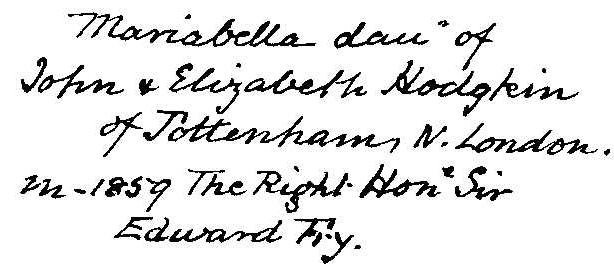 Mariabella dau" of
John & Elizabeth Hodgkin
of Tottenham, N. London.
m - 1859 The Right Honᵉ Sir
Edward Fry.